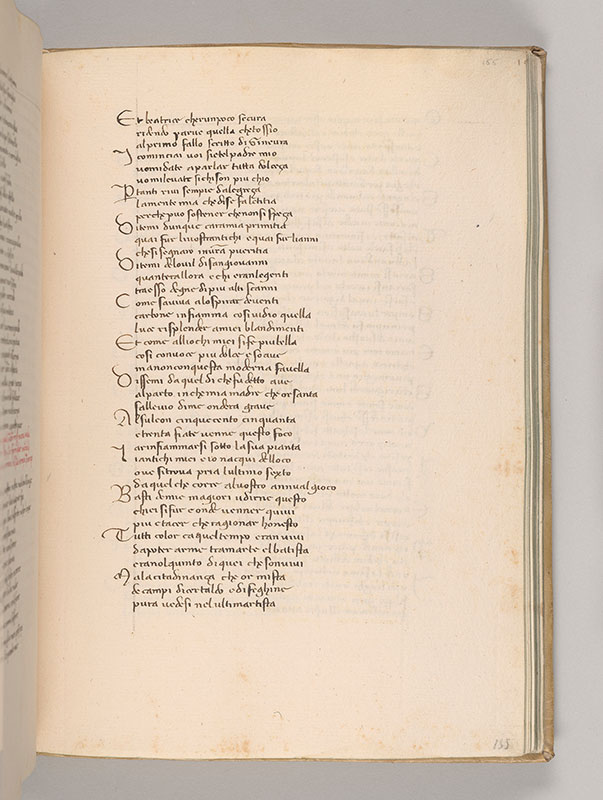 155
Et beatrice cherunpoco secura
ridendo parue quella che tossio
alprimo fallo scritto di Gineura
I cominciai voi sietelpadre mio
uoimidate aparlar tutta baldeza
uoimileuate sichison piu chio
P tanti riui sempie dalegreça
lamente mia che dise fa letitia
perche puo sostener chenonsi speça
Ditemi dunque cara mia primitia
quai fur liuostrantichi e quai fur lianni
chesi segnaro in ur̃a pueritia
Ditemi delouil disangiouanni
quanterallora e chi eran legenti
tra esso degne di piu alti scanni
Come sauiua alospirar deuenti
carbone infiamma cosi uidio quella
luce risplender amiei blandimenti
Et come alliochi miei si fe piu bella
cosi conuoce piu dolce e soaue
manonconquesta moderna fauella
Dissemi da quel di che fu detto aue
alparto inche mia madre che or santa
salleuio dime ondera graue
Alsuleon cinquecento cinquanta
e trenta fiate uenne questo foco
arinfiammarsi sotto lasua pianta
I antichi miei e io nacqui nelloco
oue sitroua pria lultimo sexto
da quel che corre aluostro annual gioco
Basti demie magiori udirne questo
chiei si fur e onde uenner quiui
piu e tacer che ragionar honesto
Tutti color ca quel tempo eran iuui
dapoter arme tramarte elbatista
eranolquinto di quei che son uiui
Mala citadinança che or mista
de campi dicertaldo e di feghine
pura uedesi nel ultimartista
155